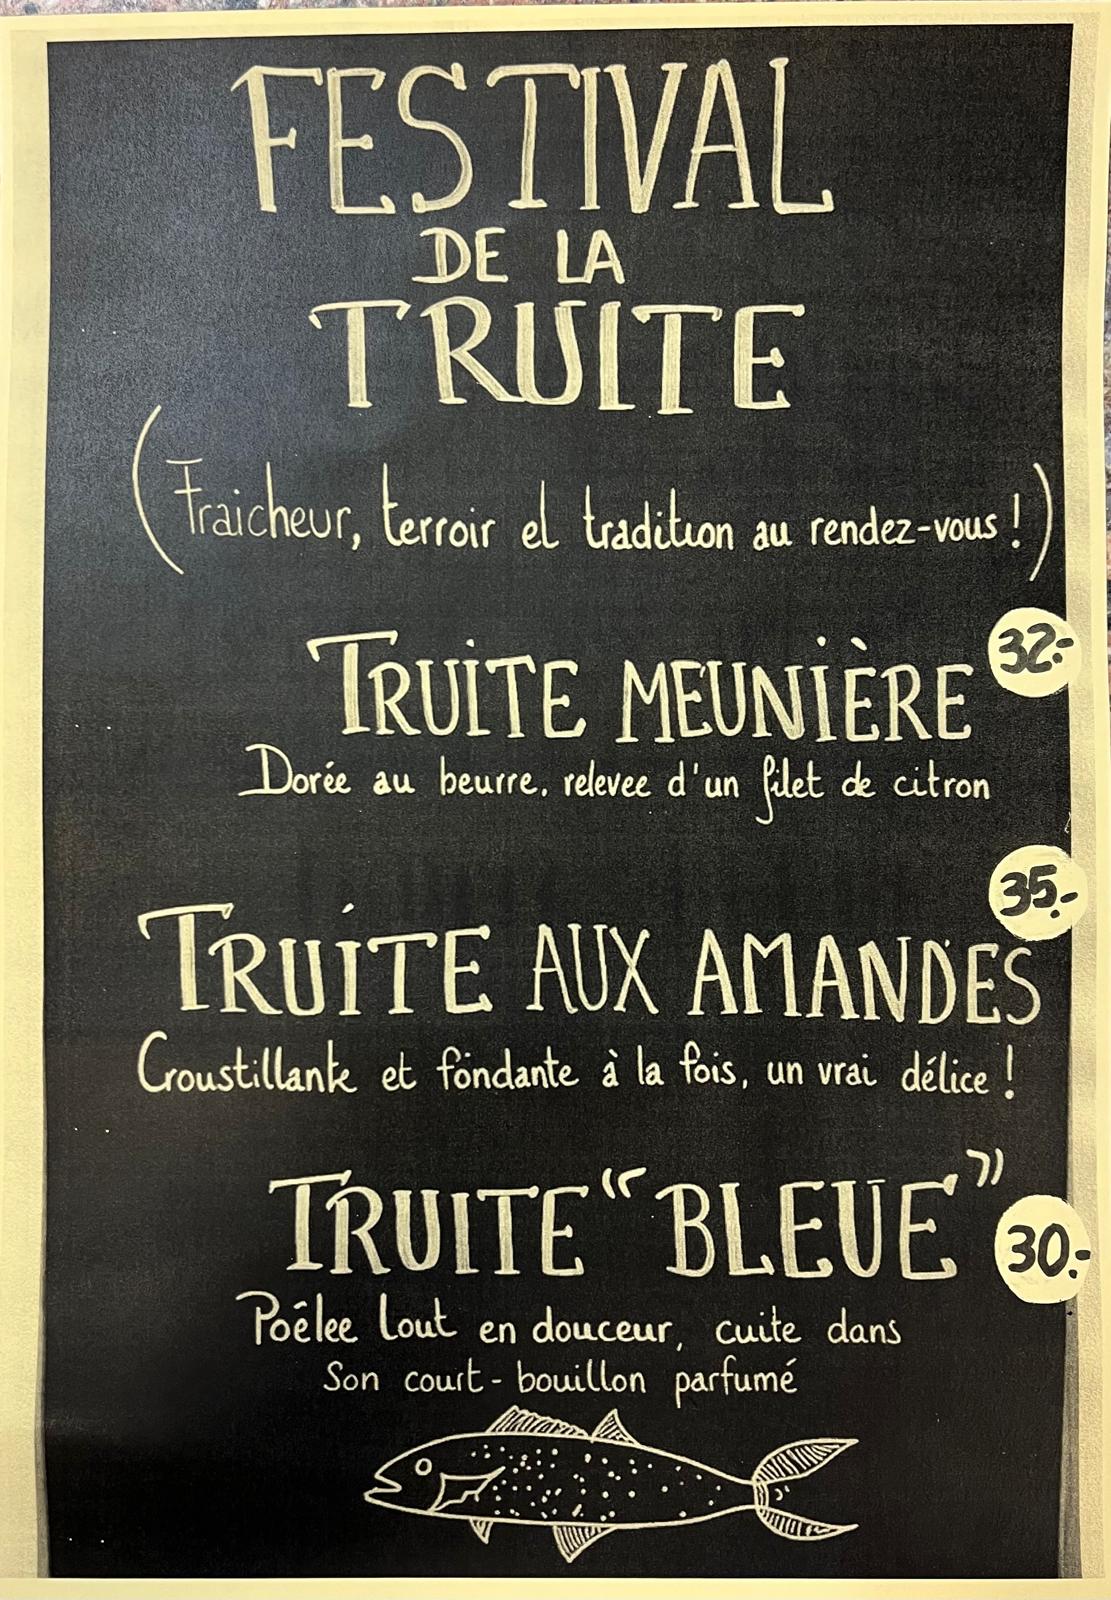 FESTIVAL
DE LA
TRUITE
(Fraicheur, terroir et tradition au rendez-vous !)
32.-
TRUITE MEUNIÈRE
Dorée au beurre, relevee d'un filet de citron
35.-
TRUITE AUX AMANDES
Croustillante et fondante à la fois, un vrai délice !
TRUITE "BLEUE"
30.-
Poêlee tout en douceur, cuite dans
Son court-bouillon parfumé